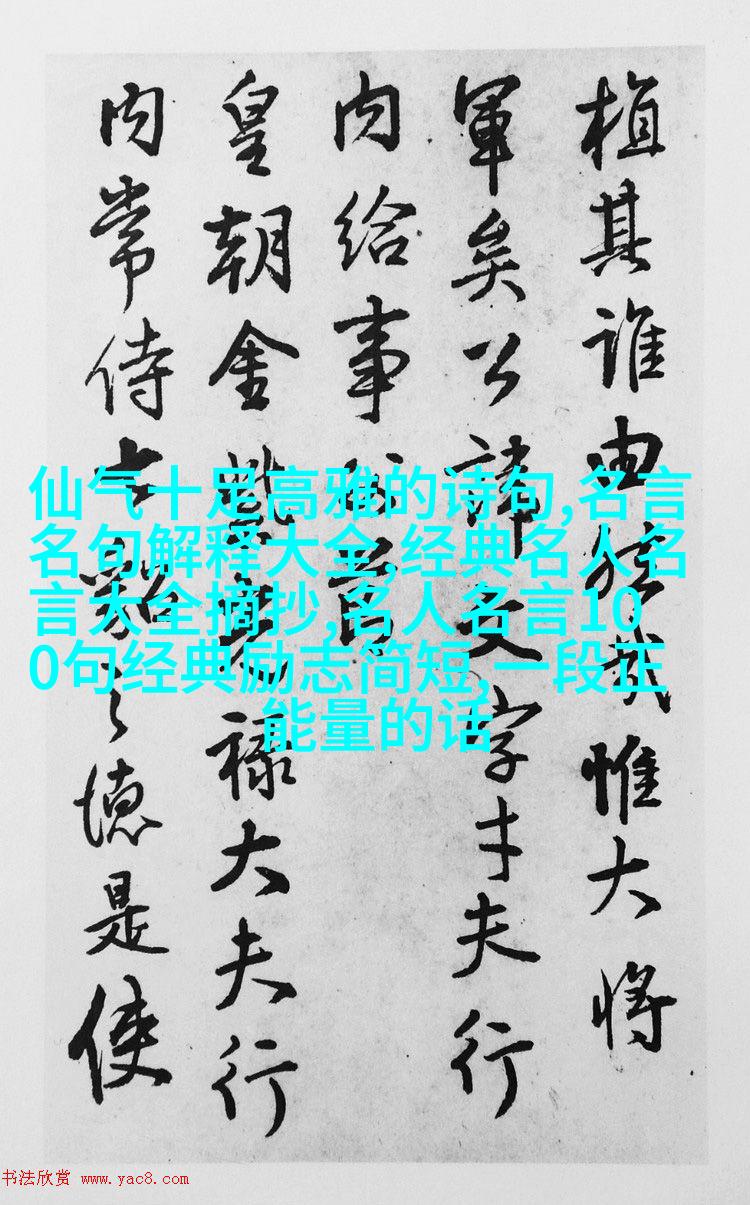 植其誰由哉惟大將
軍矣公諱文字才夫行
内給事
皇朝金紫光祿大夫行
内常侍之德是使
仙气十足高雅的诗句,名言
名句解释大全,经典名人名
言大全摘抄,名人名言10
0句经典励志简短,一段正
能量的话
书法欣赏 www.yac8.com